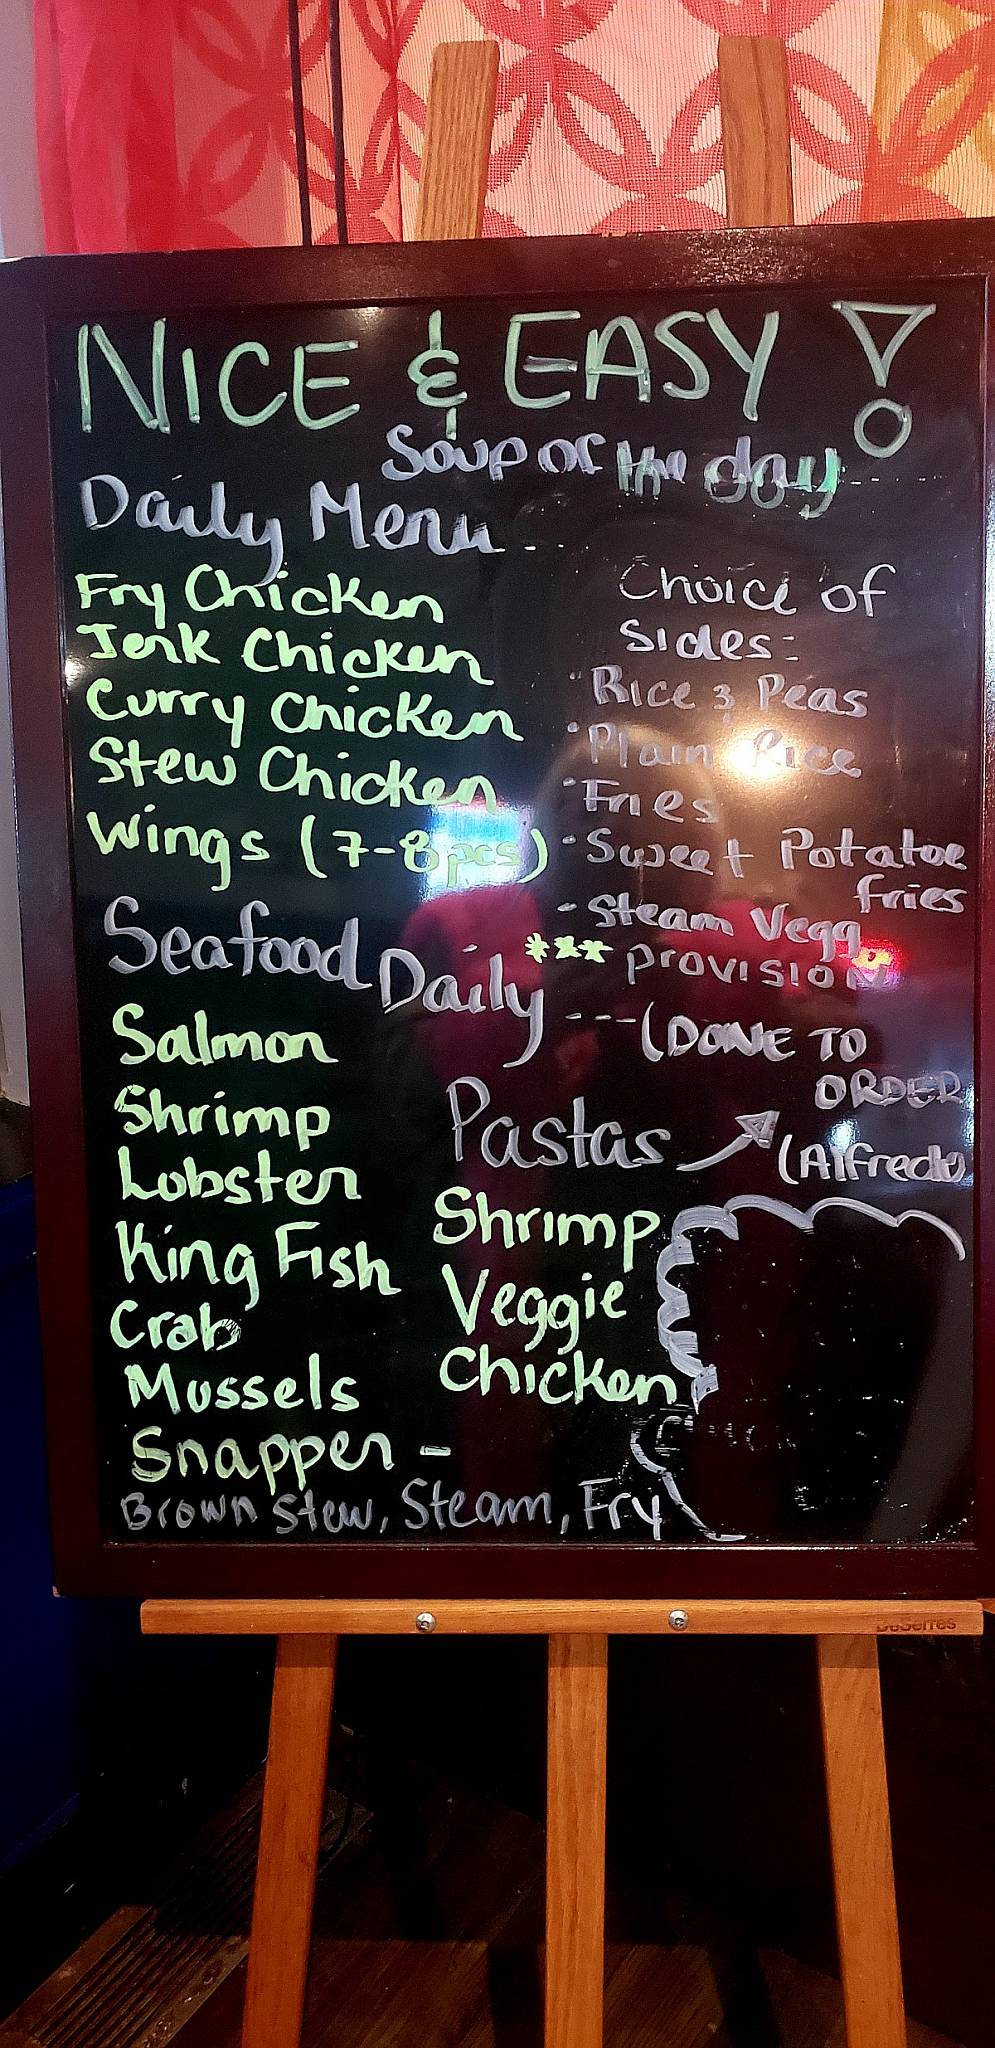 NICE & EASY !
Soup of the day
Daily Menu
Fry Chicken
Jerk Chicken
Curry Chicken
Stew Chicken
Wings (7-8pcs)
Choice of
Sides:
• Rice & Peas
• Plain Rice
• Fries
• Sweet Potatoe
fries
- Steam Vegg
*** PROVISION
Seafood Daily --- (DONE TO
ORDER
Salmon
Shrimp
Lobster
King Fish
Crab
Mussels
Snapper -
Brown Stew, Steam, Fry
Pastas
(Alfredo)
Shrimp
Veggie
Chicken
DeSerres